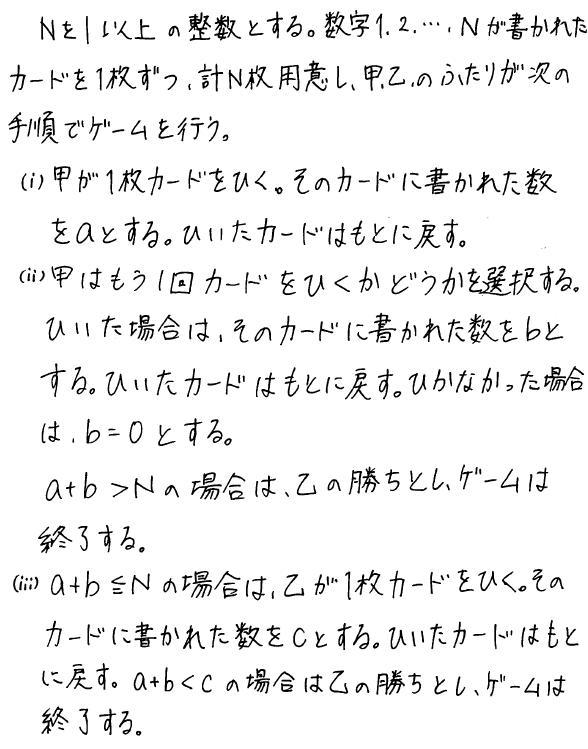 Nを1以上の整数とする。数字1.2.…、Nが書かれた
カードを1枚ずつ、計N枚用意し、甲,乙,のふたりが次の
手順でゲームを行う。
(i) 甲が1枚カードをひく。そのカードに書かれた数
をaとする。ひいたカードはもとに戻す。
(ii) 甲はもう1回カードをひくかどうかを選択する。
ひいた場合は、そのカードに書かれた数をbと
する。ひいたカードはもとに戻す。ひかなかった場合
は、b=0とする。
a+b>Nの場合は、乙の勝ちとし、ゲームは
終了する。
(iii) a+b≦Nの場合は、乙が1枚カードをひく。その
カードに書かれた数をcとする。ひいたカードはもと
に戻す。a+b<cの場合は乙の勝ちとし、ゲームは
終了する。